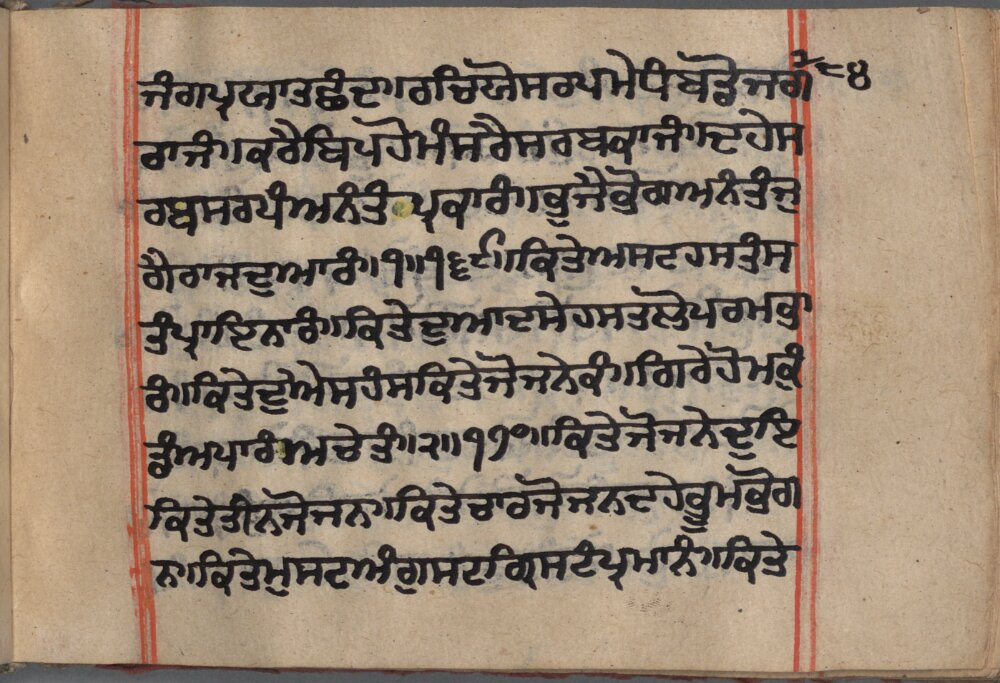 ਜੰਗ ਪ੍ਰਯਾਤ ਛੰਦ॥ ਰਚਿਯੋ ਸਰਪ ਮੇਧੰ ਬਡੋ ਜਗ ੮੪
ਰਾਜੰ॥ ਕਰੈ ਬਿਪ ਹੋਮੰ ਸਰੈ ਸਰਬ ਕਾਜੰ॥ ਦਹੇ ਸ
ਰਬ ਸਰਪੰ ਅਨੰਤੰ ਪ੍ਰਕਾਰੰ॥ ਭੁਜੈ ਭੋਗ ਅਨੰਤੰ ਜੁ
ਗੈ ਰਾਜ ਦੁਆਰੰ॥੧॥੧੬੯॥ ਕਿਤੇ ਅਸਟ ਹਸਤੰ ਸ
ਤੰ ਪ੍ਰਾਇ ਨਾਰੰ॥ ਕਿਤੇ ਦੁਆਦਸੇ ਹਸਤ ਲੌ ਪਰਮ ਭਾ
ਰੰ॥ ਕਿਤੇ ਦੁਐ ਸਹੰਸ ਕਿਤੇ ਜੋਜਨੇਕੰ॥ ਗਿਰੇ ਹੋਮ ਕੁੰ
ਡੰ ਅਪਾਰੰ ਅਚੇਤੰ॥੨॥੧੭੦॥ ਕਿਤੇ ਜੋਜਨੇ ਦੁਇ
ਕਿਤੇ ਤੀਨ ਜੋਜਨ॥ ਕਿਤੇ ਚਾਰ ਜੋਜਨ ਦਹੇ ਭੂਮ ਭੋਗ
ਨ॥ ਕਿਤੇ ਮੁਸਟ ਅੰਗੁਸਟ ਗ੍ਰਿਸਟੰ ਪ੍ਰਮਾਨੰ॥ ਕਿਤੇ